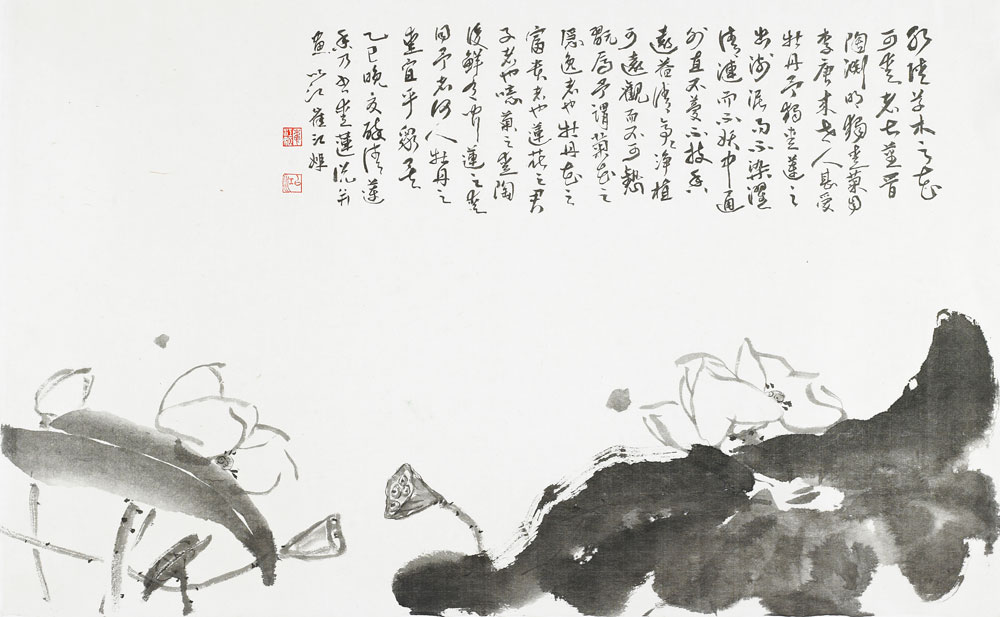 水陸草木之花
可愛者甚蕃晉
陶淵明獨愛菊自
李唐來世人甚愛
牡丹予獨愛蓮之
出淤泥而不染濯
清漣而不妖中通
外直不蔓不枝香
遠益清亭々淨植
可遠觀而不可褻
翫焉予謂菊花之
隱逸者也牡丹花之
富貴者也蓮花之君
子者也噫菊之愛陶
後鮮有聞蓮之愛
同予者何人牡丹之
愛宜乎衆矣
乙巳晚夏醉清蓮
香乃書愛蓮說并
畫 以江 崔